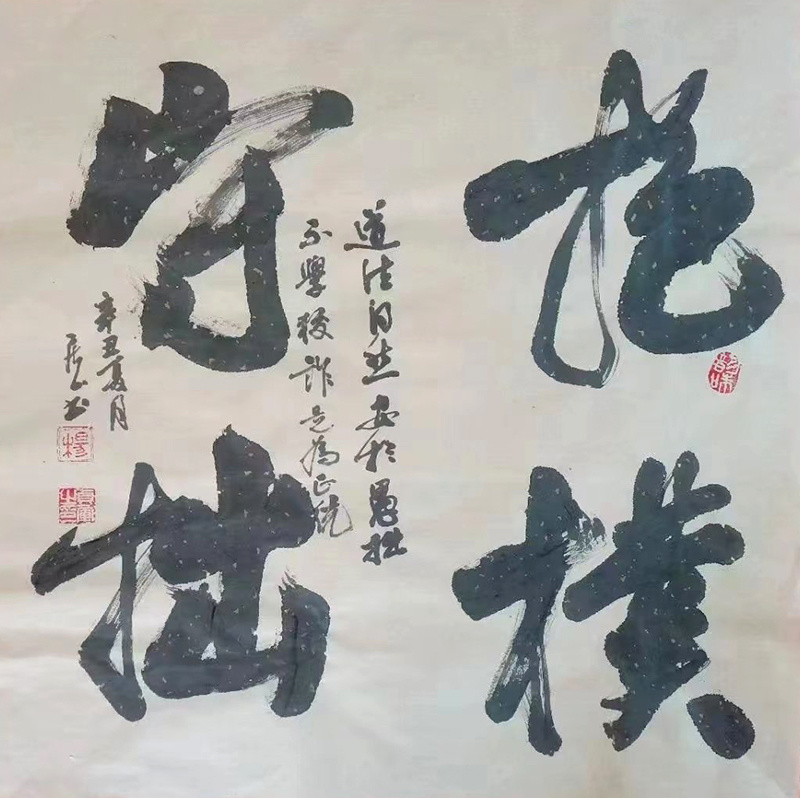 抱樸
守拙
道法自然安於愚拙
不學狡詐是為正統
辛丑夏月